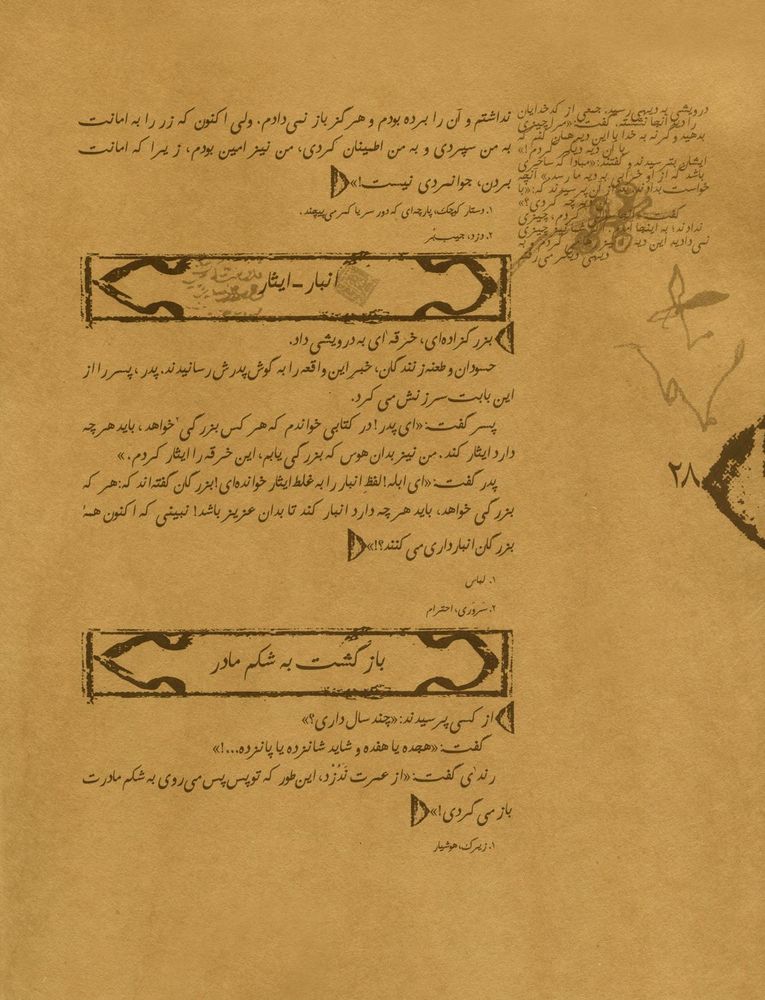 نداشتم و آن را برده بودم و هرگز باز نمی‌دادم. ولی اکنون که زر را به امانت
به من سپردی و به من اطمینان کردی، من نیز امین بودم، زیرا که امانت
بردن، جوانمردی نیست!»
۱. دستار کوچک، پارچه‌ای که دور سر یا کمر می‌پیچند.
۲. دزد، جیب‌بُر
انبار ـ ایثار
بزرگزاده‌ای، خرقه‌ای به درویشی داد.
حسودان و طعنه‌زنندگان، خبر این واقعه را به گوش پدرش رسانیدند. پدر، پسر را از
این بابت سرزنش می‌کرد.
پسر گفت: «ای پدر! در کتابی خواندم که هر کس بزرگی خواهد، باید هر چه
دارد ایثار کند. من نیز بدان هوس که بزرگی یابم، این خرقه را ایثار کردم.»
پدر گفت: «ای ابله! لفظ انبار را به غلط ایثار خوانده‌ای! بزرگان گفته‌اند که: هر که
بزرگی خواهد، باید هر چه دارد انبار کند تا بدان عزیز باشد! نبینی که اکنون همهٔ
بزرگان انبارداری می‌کنند؟!»
۱. لباس
۲. سَروَری، احترام
بازگشت به شکم مادر
از کسی پرسیدند: «چند سال داری؟»
گفت: «هجده یا هفده و شاید شانزده یا پانزده...!»
رندی گفت: «از عمرت نَدُزْد، این‌طور که تو پس پس می‌روی به شکم مادرت
باز می‌گردی!»
۱. زیرک، هوشیار
درویشی به دیهی رسید. جمعی از کدخدایان
را دید آنجا نشسته. گفت: «مرا چیزی
بدهید وگرنه به خدا با این دیه همان کنم که
با آن دیه دیگر کردم!»
ایشان بترسیدند و گفتند: «مبادا که ساحری
باشد که از او خرابی به دیه ما رسد.» آنچه
خواست بدادند. بعد از آن پرسیدند که: «با
دیه چه کردی؟»
گفت: کردم، چیزی
ندادند؛ به اینجا چیزی
نمی‌دادید این دیه را کردم و به
دیهی دیگر می‌رفتم
۲۸